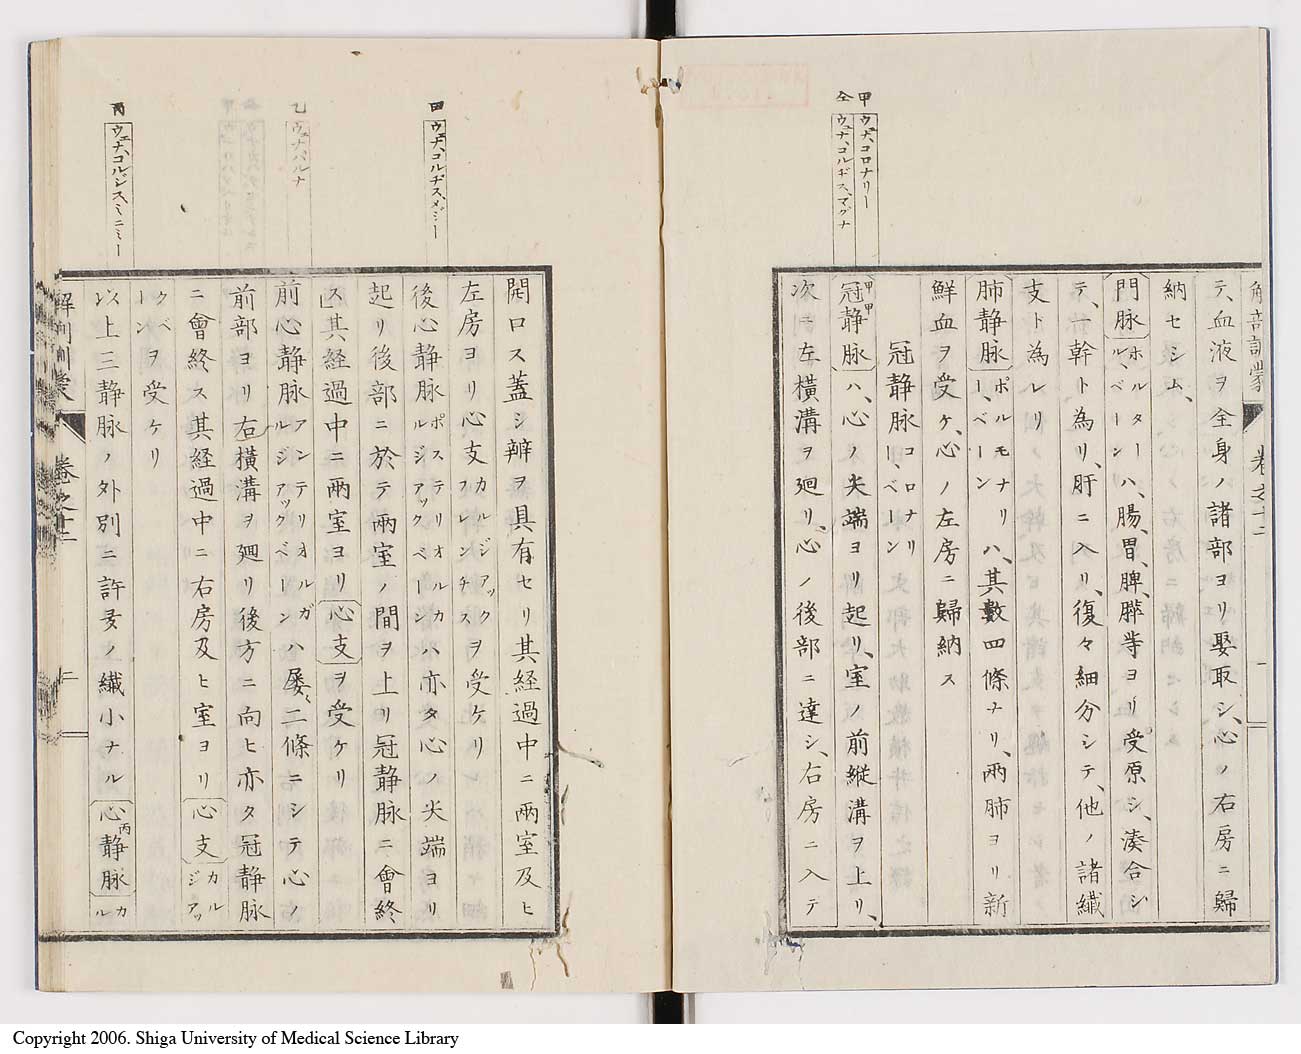 甲 ウェナ、コロナリー
仝 ウェナ、コルヂス、マグナ
解剖訓蒙 巻之十二 一
テ、血液ヲ全身ノ諸部ヨリ娶取シ、心ノ右房ニ歸
納セシム、
門脉ホルタール、ベーンハ、腸、胃、脾、膵等ヨリ受原シ、湊合シ
テ、一幹ト為リ、肝ニ入リ、復々細分シテ、他ノ諸纎
支ト為レリ
肺静脉ポルモナリー、ベーンハ、其數四條ナリ、兩肺ヨリ新
鮮血ヲ受ケ、心ノ左房ニ歸納ス
冠静脉コロナリー、ベーン
冠静脉甲甲ハ、心ノ尖端ヨリ起リ、室ノ前縱溝ヲ上リ、
次ニ左横溝ヲ廻リ、心ノ後部ニ達シ、右房ニ入テ
田 ウェナ、コルヂス、メシー
乙 ウェナ、パルナ
丙 ウェナ、コルジス、ミニミー
開口ス蓋シ辨ヲ具有セリ其経過中ニ兩室及ヒ
左房ヨリ心支カルジアックフレンチスヲ受ケリ
後心静脉ポステリオルカルジアックベーンハ亦タ心ノ尖端ヨリ
起リ後部ニ於テ兩室ノ間ヲ上リ冠静脉ニ會終
ス其経過中ニ兩室ヨリ心支ヲ受ケリ
前心静脉アンテリオルカルジアックベーンハ屡、二條ニシテ心ノ
前部ヨリ右横溝ヲ廻リ後方ニ向ヒ亦タ冠静脉
ニ會終ス其経過中ニ右房及ヒ室ヨリ心支カルジアッ
クベーンヲ受ケリ
以上三静脉ノ外別ニ許多ノ纎小ナル心丙静脉カル
解剖訓蒙 巻之十二 二
Copyright 2006. Shiga University of Medical Science Library